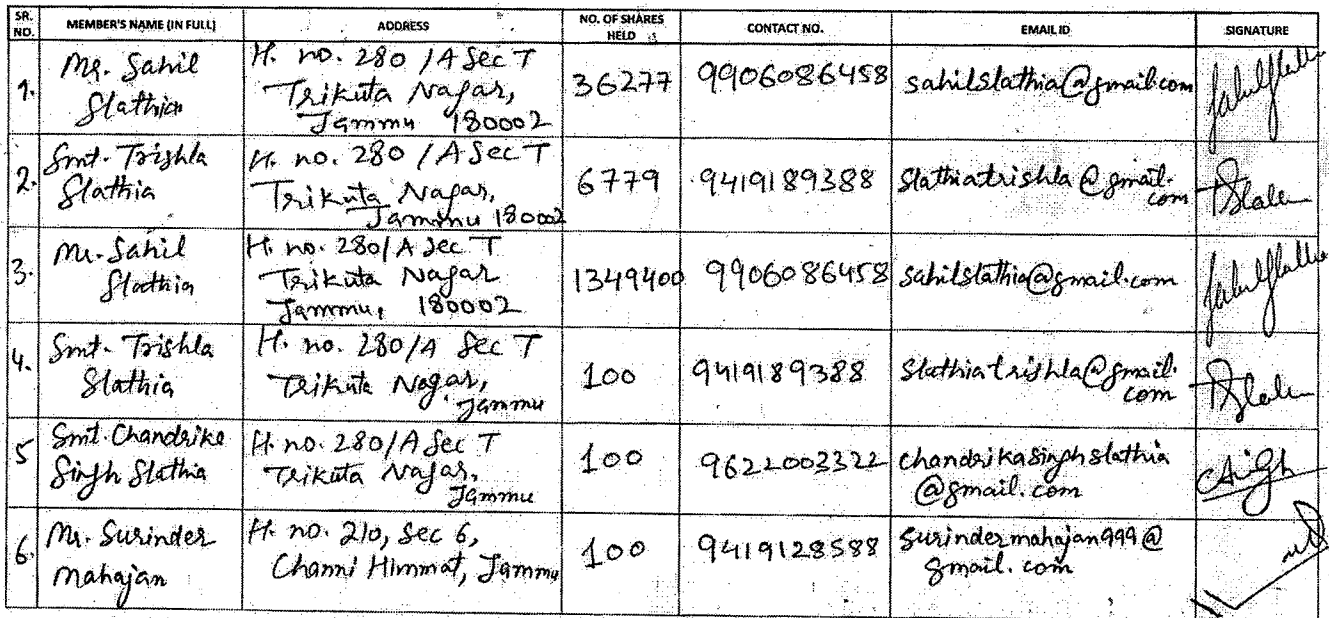 SR. NO. MEMBER'S NAME (IN FULL) ADDRESS NO. OF SHARES HELD CONTACT NO. EMAIL ID SIGNATURE
1. Mr. Sahil Slathia H. no. 280 /A Sec T Trikuta Nagar, Jammu 180002 36277 9906086458 sahilslathia@gmail.com
2. Smt. Trishla Slathia H. no. 280 /A Sec T Trikuta Nagar, Jammu 180002 6779 9419189388 slathiatrishla@gmail.com
3. Mr. Sahil Slathia H. no. 280/A Sec T Trikuta Nagar Jammu, 180002 1349400 9906086458 sahilslathia@gmail.com
4. Smt. Trishla Slathia H. no. 280/A Sec T Trikuta Nagar, Jammu 100 9419189388 slathiatrishla@gmail.com
5 Smt. Chandrika Singh Slathia H. no. 280/A Sec T Trikuta Nagar, Jammu 100 9622003322 chandrikasinghslathia@gmail.com
6. Mr. Surinder Mahajan H. no. 210, Sec 6, Channi Himmat, Jammu 100 9419128588 surindermahajan999@gmail.com